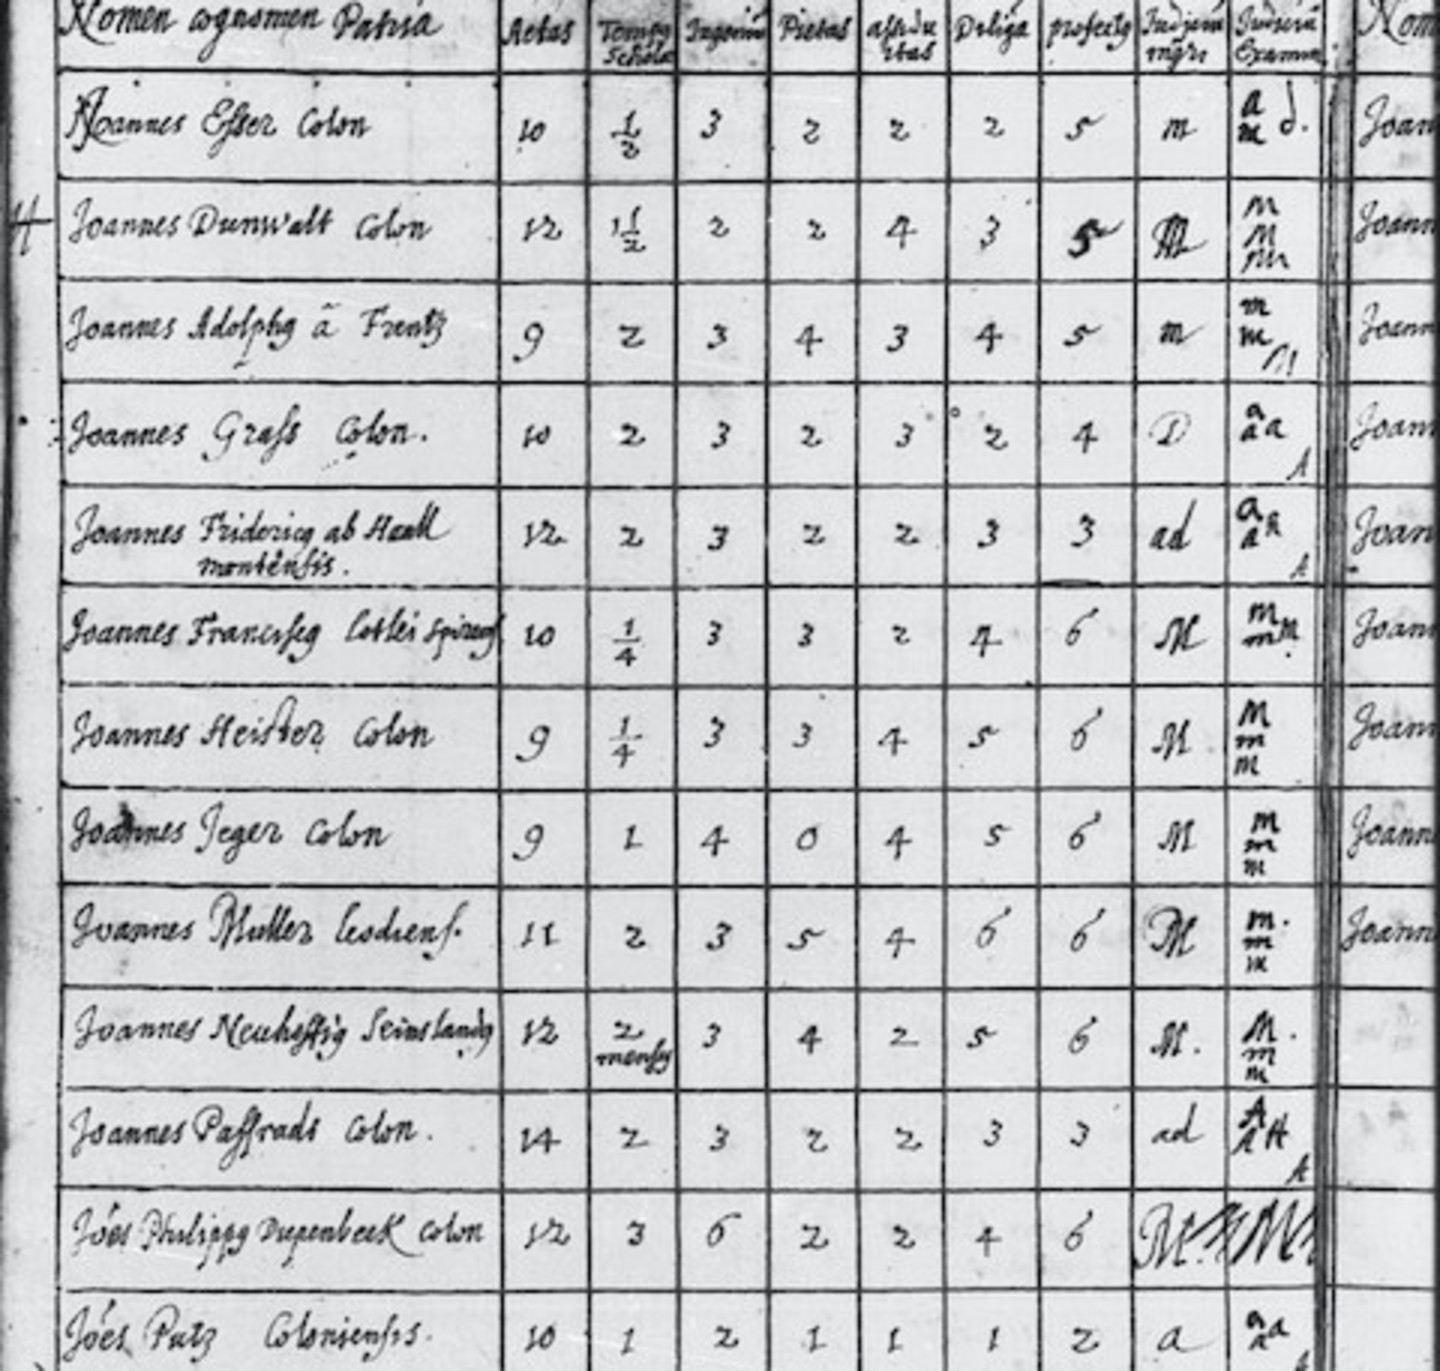 Nomen cognomen Patria Aetas Tempus Scholae Ingeniũ Pietas assiduitas Diliga profectus Judiciũ mgri Judiciũ Examin Nom
Joannes Esser Colon 10 1/2 3 2 2 2 5 m a m d. Joan
H Joannes Dunwalt Colon 12 1 1/2 2 2 4 3 5 M m m m Joann
Joannes Adolphus ã Frentz 9 2 3 4 3 4 5 m m m m Joann
Joannes Grass Colon. 10 2 3 2 3 2 4 D a a a A Joann
Joannes Fridericus ab Haall 12 2 3 2 2 3 3 ad a a A Joan
montensis.
Joannes Franciscus 10 1/4 3 3 2 4 6 M m m m Joann
Joannes Heister Colon 9 1/4 3 3 4 5 6 M M m m Joann
Joannes Jeger Colon 9 1 4 0 4 5 6 M m m m Joann
Joannes Muller leodiens. 11 2 3 5 4 6 6 M m. m m Joann
Joannes 12 2 menses 3 4 2 5 6 M. M. m m
Joannes Paffradt Colon. 14 2 3 2 2 3 3 ad A A A
Jões Philippus Diepenbeek Colon 12 3 6 2 2 4 6 M. M
Jões Putz Coloniensis. 10 1 2 1 1 1 2 a a a a